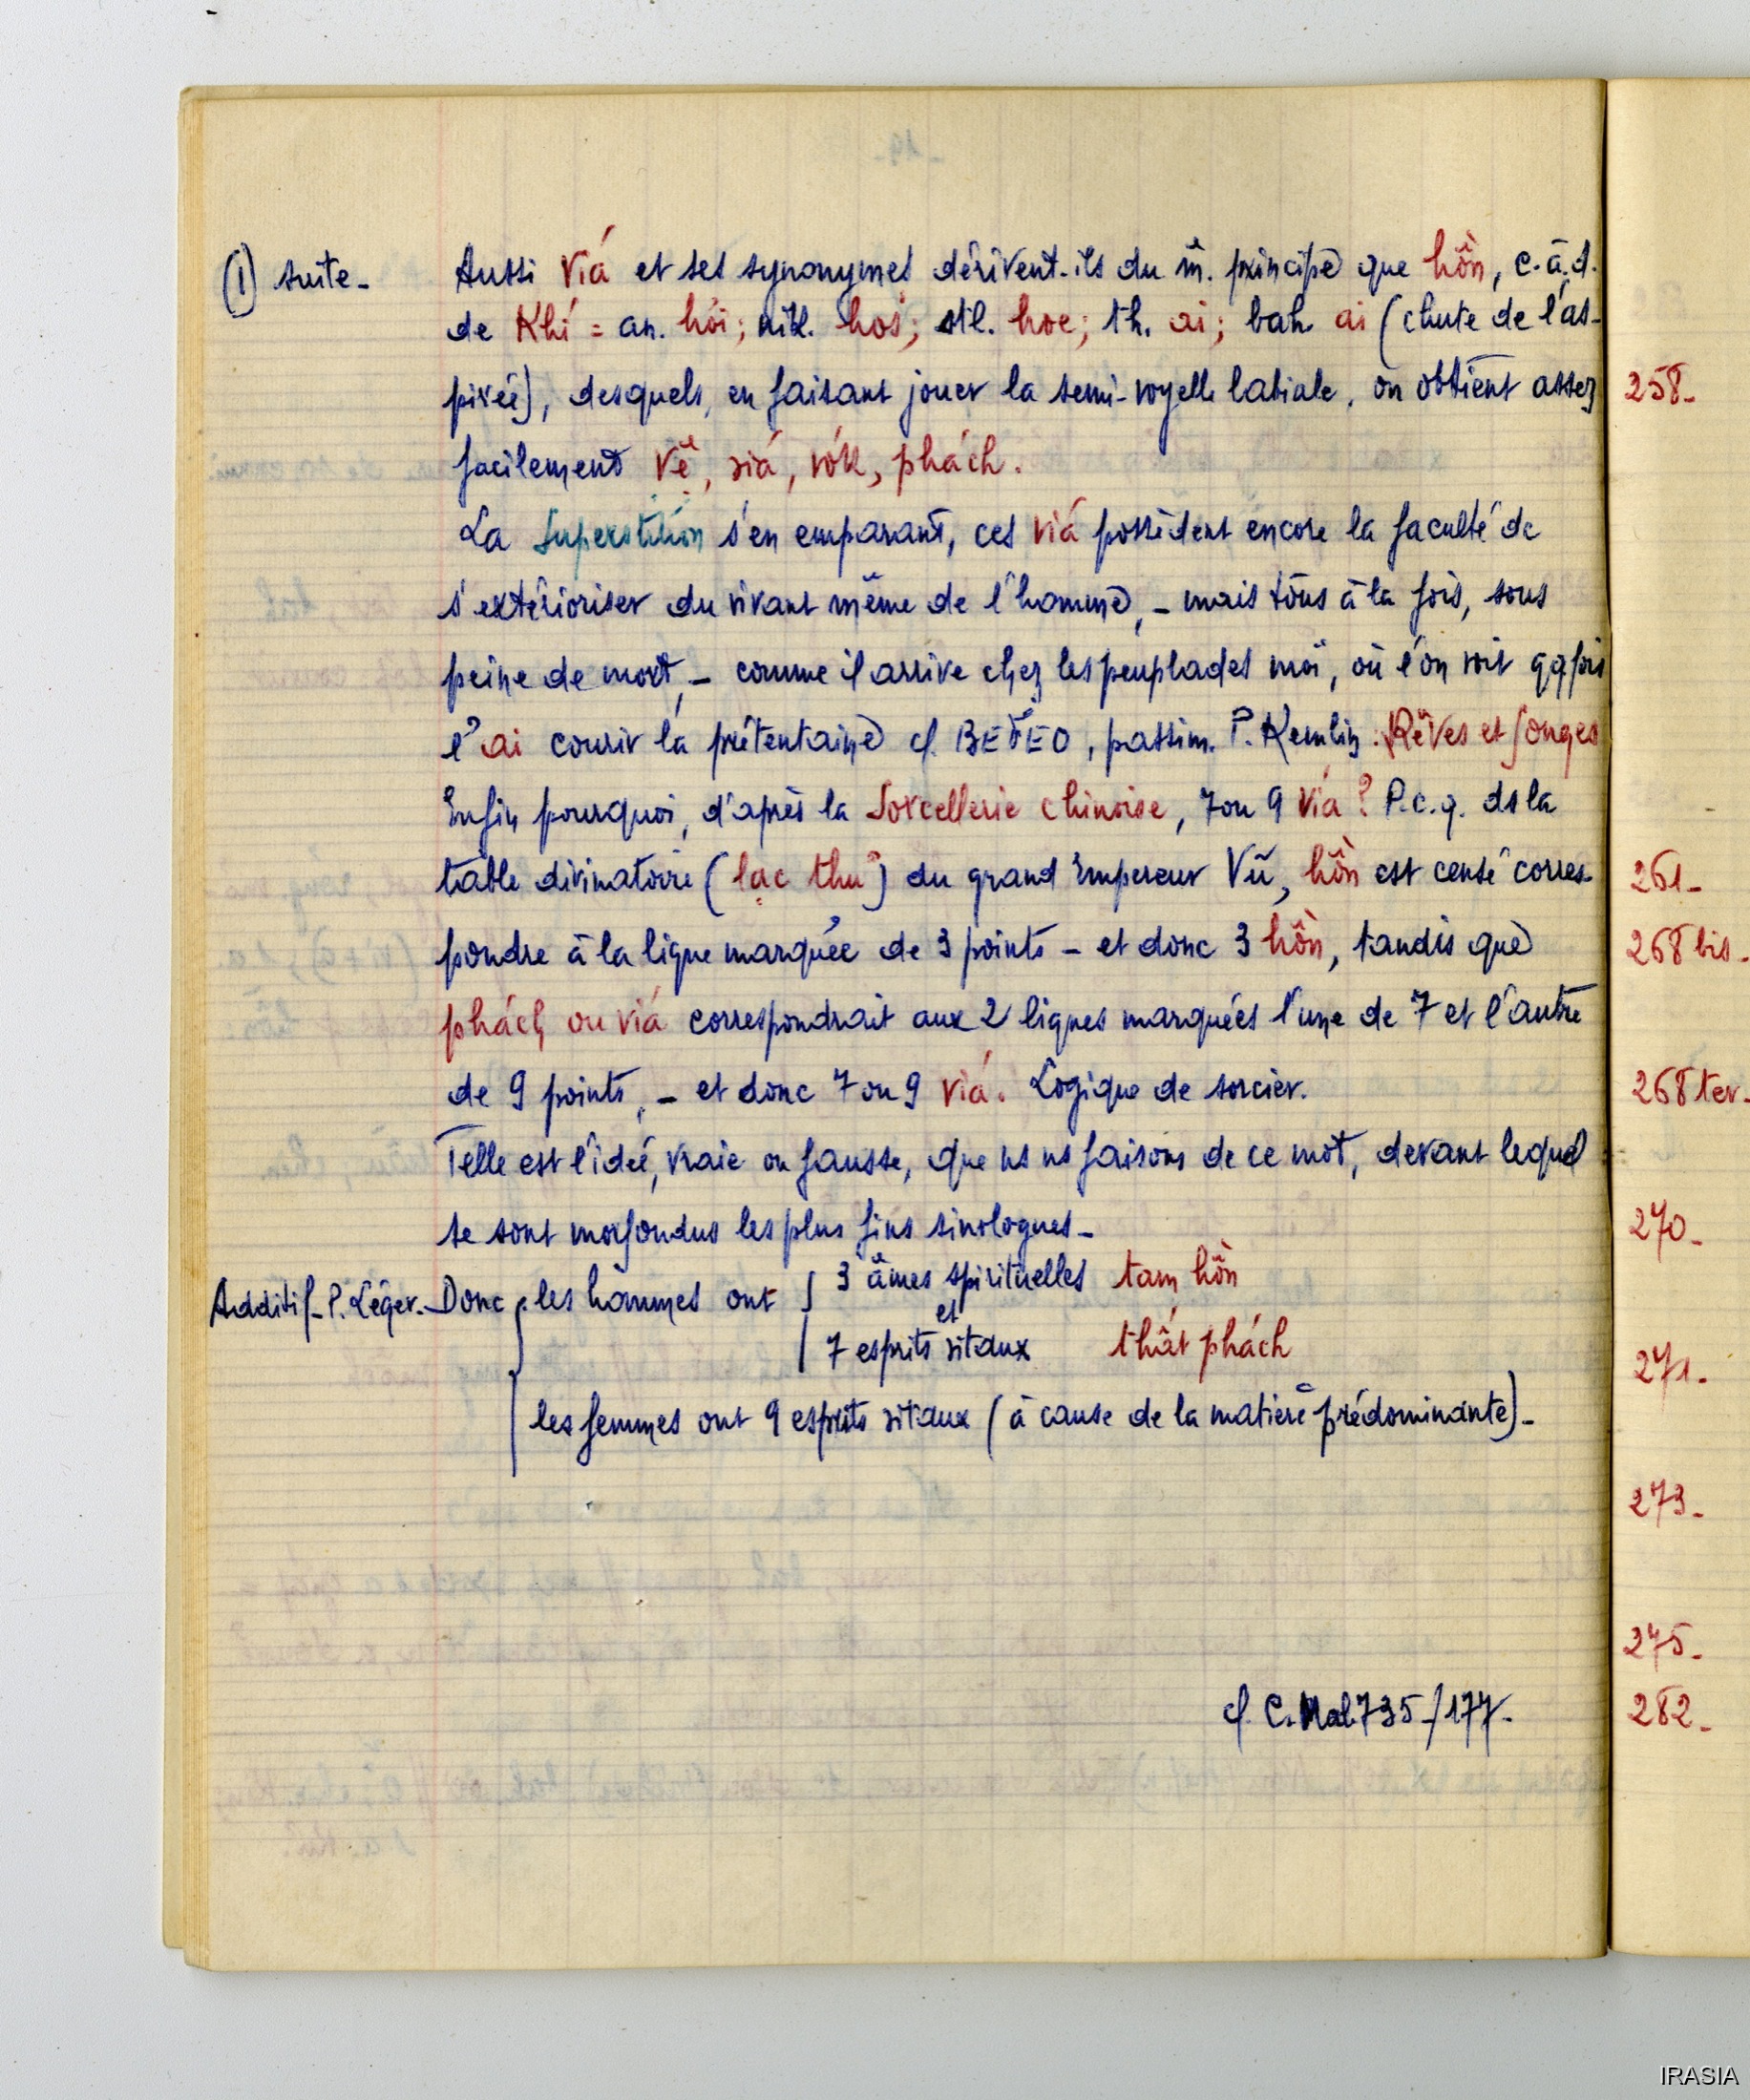 (1) suite_ Aussi Viá et ses synonymes dérivent-ils du m̂. principe que hồn, c.à.d.
de Khí = an. hỏi; nik. hoś; stl. hoe; th. ai; bah. ai (chute de l'as-
pirée), desquels, en faisant jouer la semi-voyelle labiale, on obtient assez
facilement vẽ, viá, vók, phách.
La Superstition s'en emparant, ces viá possèdent encore la faculté de
s'extérioriser du vivant même de l'homme, _ mais tous à la fois, sous
peine de mort, _ comme il arrive chez les peuplades moï, où l'on voit qqfois
l'ai courir la prétentaine cf. BEFEO, passim. P. Kemlin. Rêves et Songes
Enfin pourquoi, d'après la Sorcellerie chinoise, 7 ou 9 viá ? P.c.q. ds la
table divinatoire (lạc thư) du grand Empereur Vũ, hồn est censé corres-
pondre à la ligne marquée de 3 points _ et donc 3 hồn, tandis que
phách ou viá correspondrait aux 2 lignes marquées l'une de 7 et l'autre
de 9 points, _ et donc 7 ou 9 viá. Logique de sorcier.
Telle est l'idée, vraie ou fausse, que ns ns faisons de ce mot, devant lequel
se sont morfondus les plus fins sinologues_
Additif_ P. Léger._ Donc { les hommes ont { 3 âmes spirituelles tam hồn
et
7 esprits vitaux thất phách
les femmes ont 9 esprits vitaux (à cause de la matière prédominante)_
cf. C. Mal. 735_/177_
258_
261_
268 bis_
268 ter_
270_
271_
273_
275_
282_
IRASIA